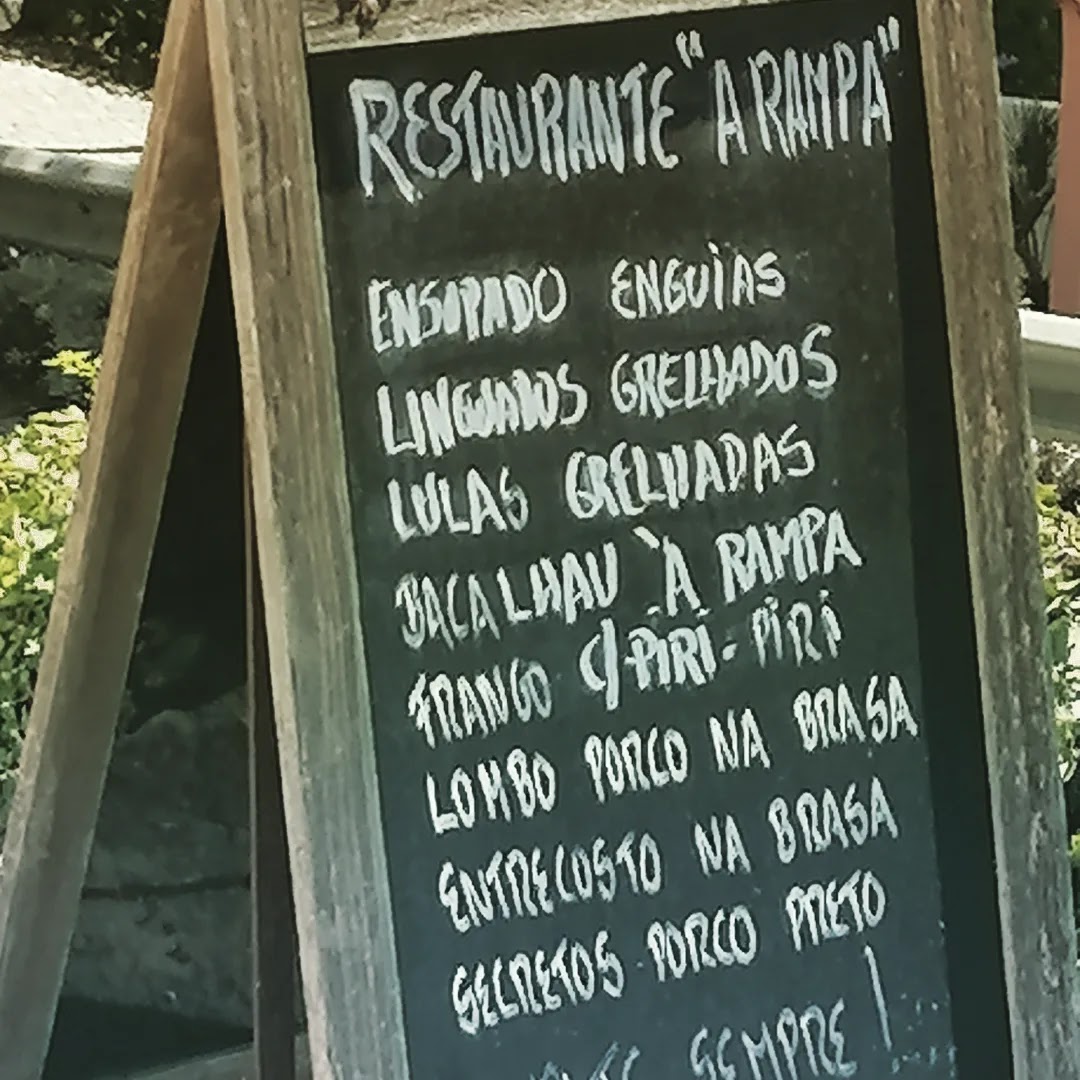 RESTAURANTE "A RAMPA"
ENSOPADO ENGUIAS
LINGUADOS GRELHADOS
LULAS GRELHADAS
BACALHAU À RAMPA
FRANGO C/PIRI-PIRI
LOMBO PORCO NA BRASA
ENTRECOSTO NA BRASA
SECRETOS PORCO PRETO
SEMPRE!